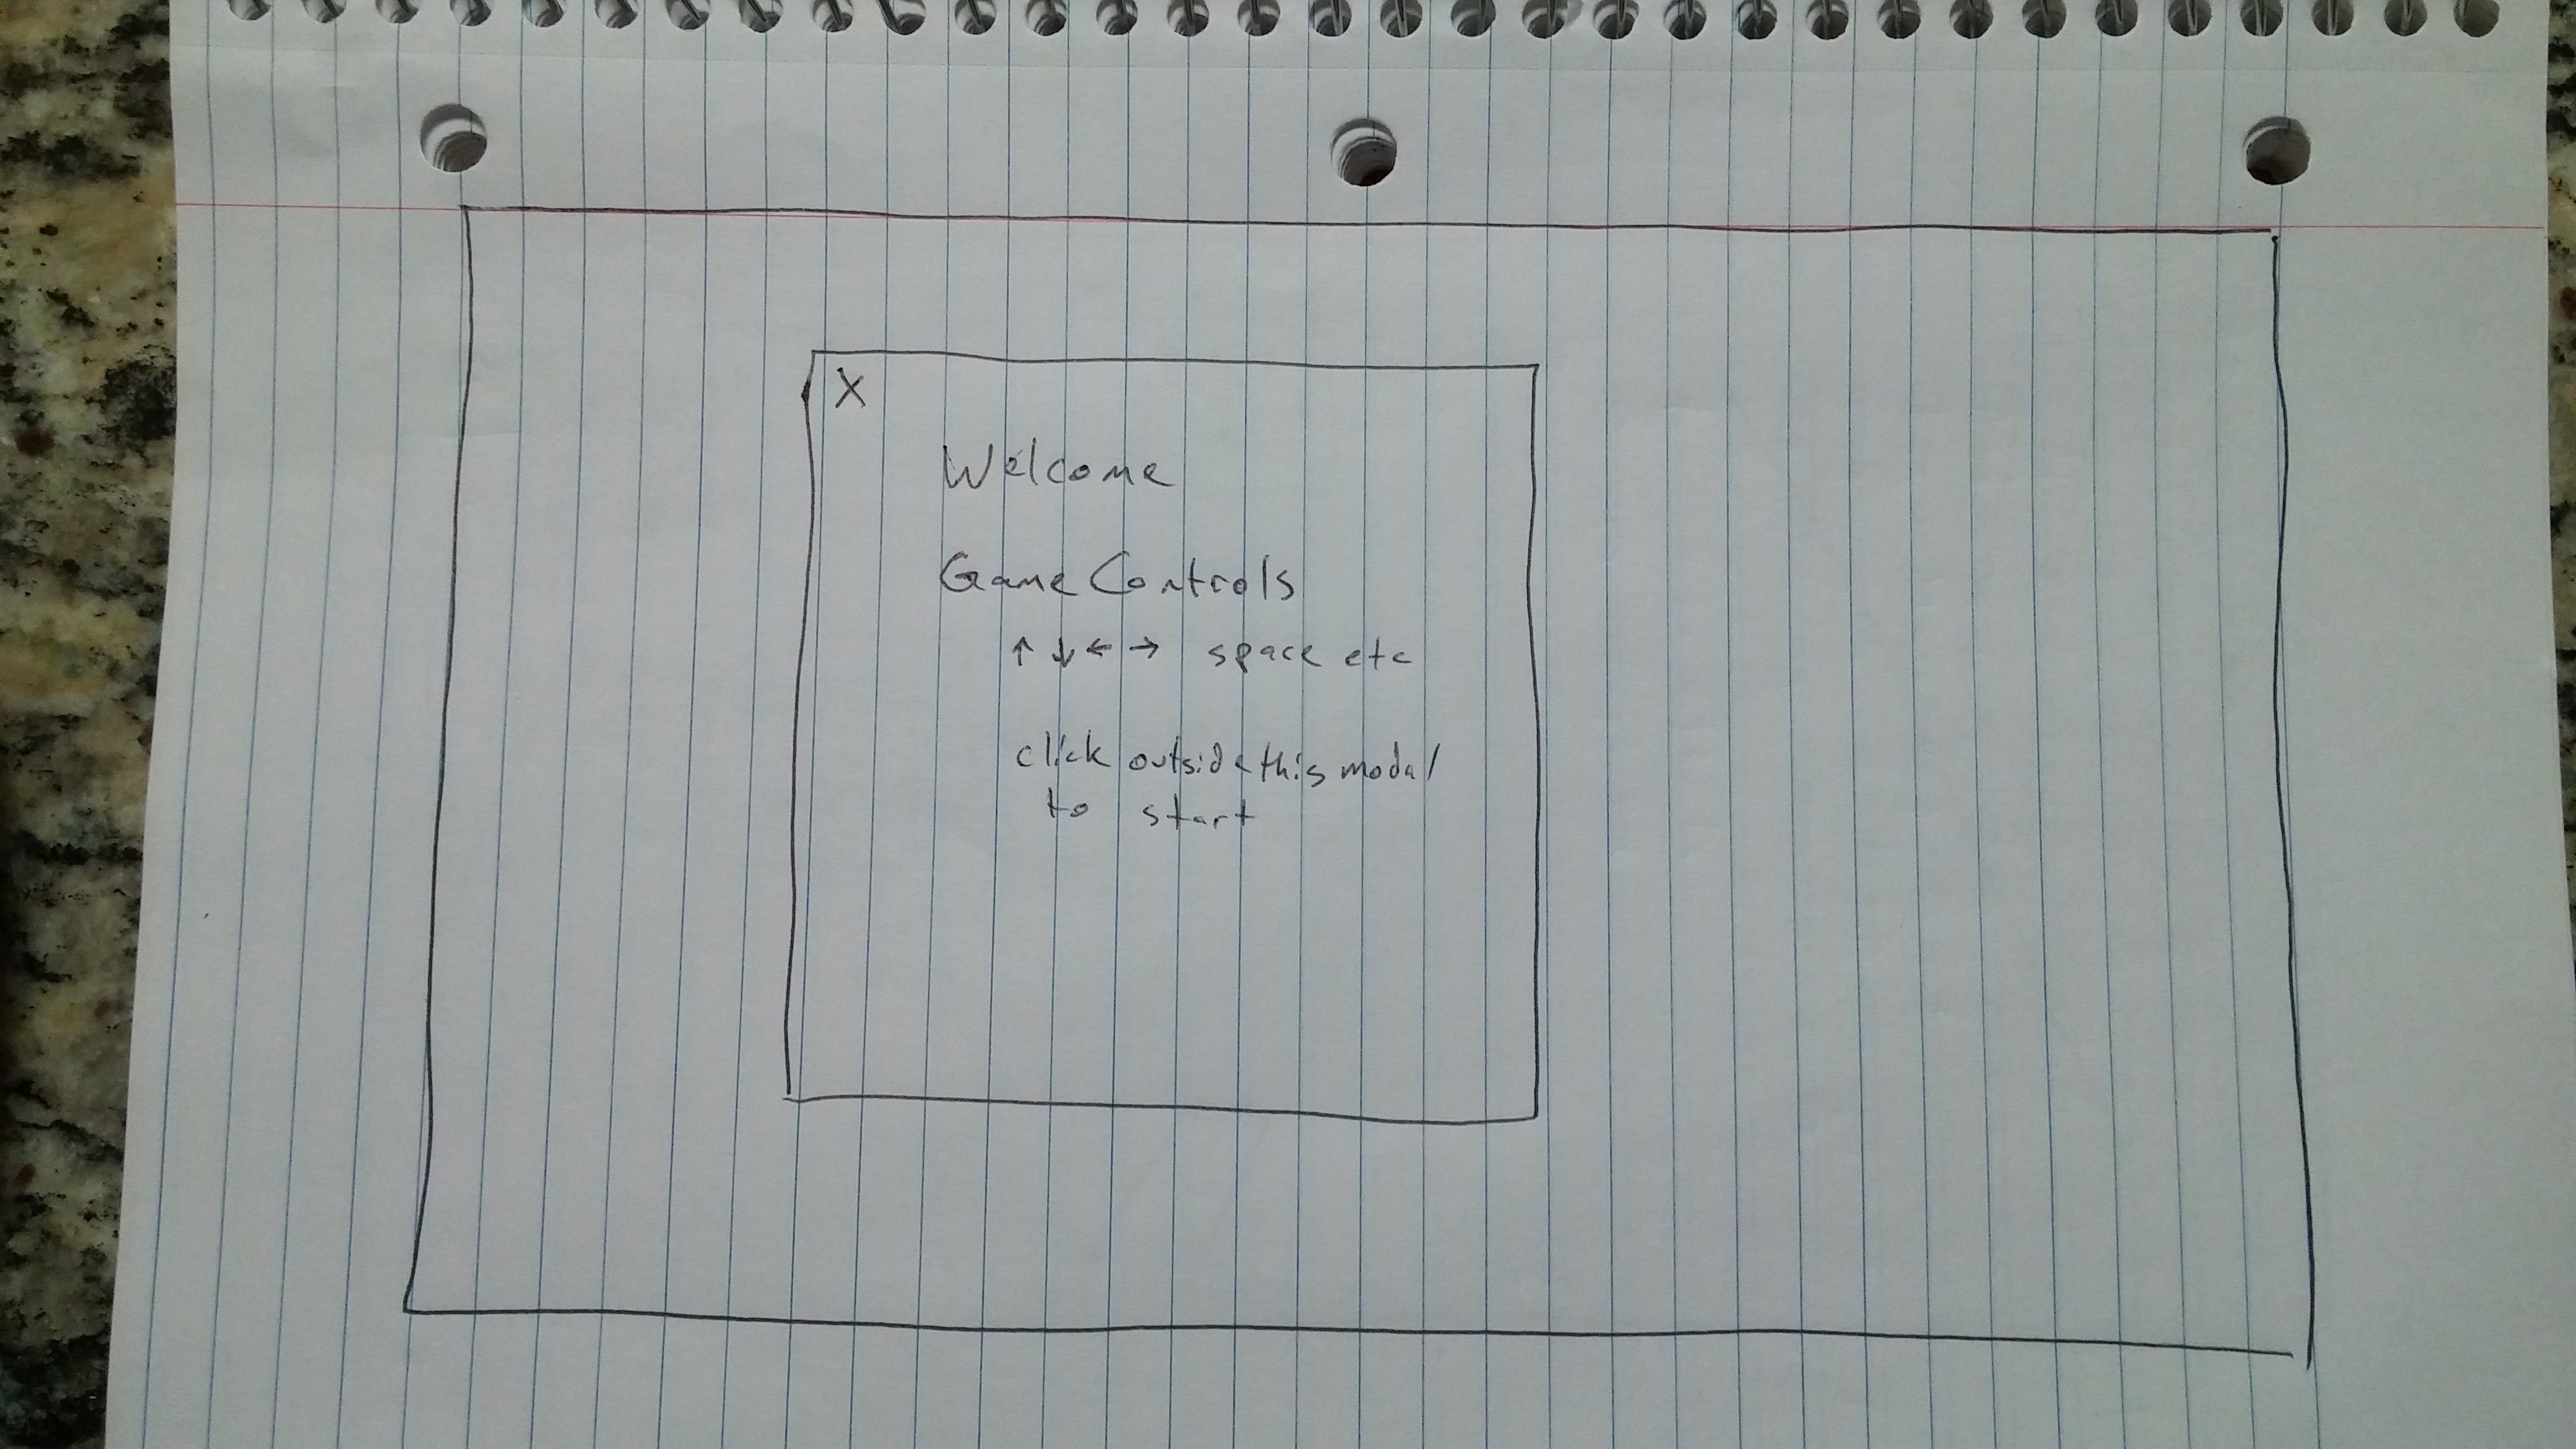 X
Welcome
Game Controls
↑ ↓ ← → space etc
click outside this modal
to start